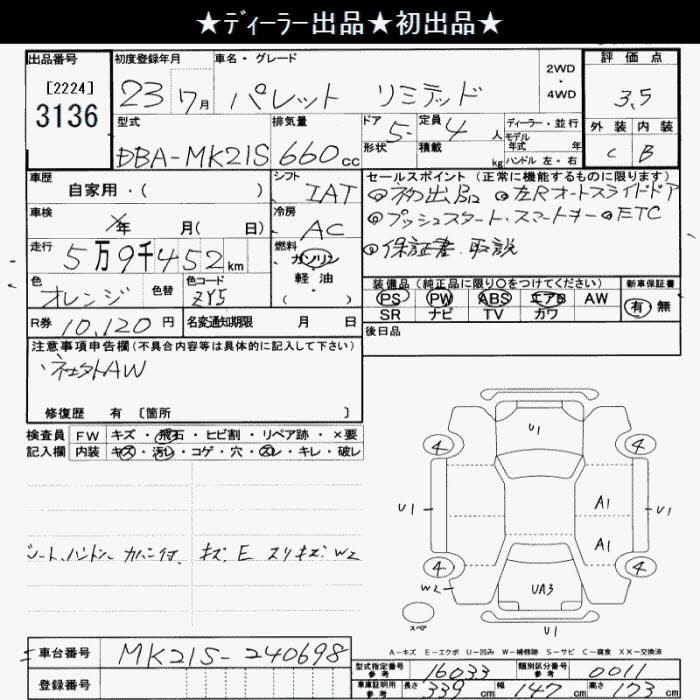 ★ディーラー出品★初出品★
出品番号
[2224]
3136
初度登録年月
23 7月
車名・グレード
パレット リミテッド
2WD
・
4WD
評価点
3.5
外装 内装
C B
型式
DBA-MK21S
排気量
660cc
ドア 5
形状
定員 4人
積載 kg
ディーラー・並行
モデル
年式 年
ハンドル 左・右
車歴
自家用・( )
シフト
IAT
セールスポイント (正常に機能するものに限ります)
◎初出品 ◎左Rオートスライドドア
◎プッシュスタート、スマートキー ◎ETC
◎保証書、取説
車検
年 月( 日)
冷房
AC
走行
5万9千452km
燃料
ガソリン
軽油
( )
色
オレンジ
色替
色コード
ZY5
装備品 (純正品に限り○をつけてください)
PS PW ABS エアB AW
SR ナビ TV カワ
新車保証書
有 無
R券 10,120円
名変通知期限 月 日
後日品
注意事項申告欄 (不具合内容等は具体的に記入して下さい)
AW
修復歴 有 〔箇所 〕
検査員
記入欄
FW キズ・飛石・ヒビ割・リペア跡・×要
内装 キズ・汚レ・コゲ・穴・スレ・キレ・破レ
シート、ハンドル、カバー付、キズ、E スリキズ W2
U1
4
4
U1
A1
U1
A1
4
4
W2
UA3
スペア
U1
A-キズ E-エクボ U-凹み W-補修跡 S-サビ C-腐食 XX-交換済
車台番号
MK21S-240698
登録番号
型式指定番号
参考
16033
類別区分番号
参考
0011
車庫証明用
参考
長さ 339 cm 幅 147 cm 高さ 173 cm